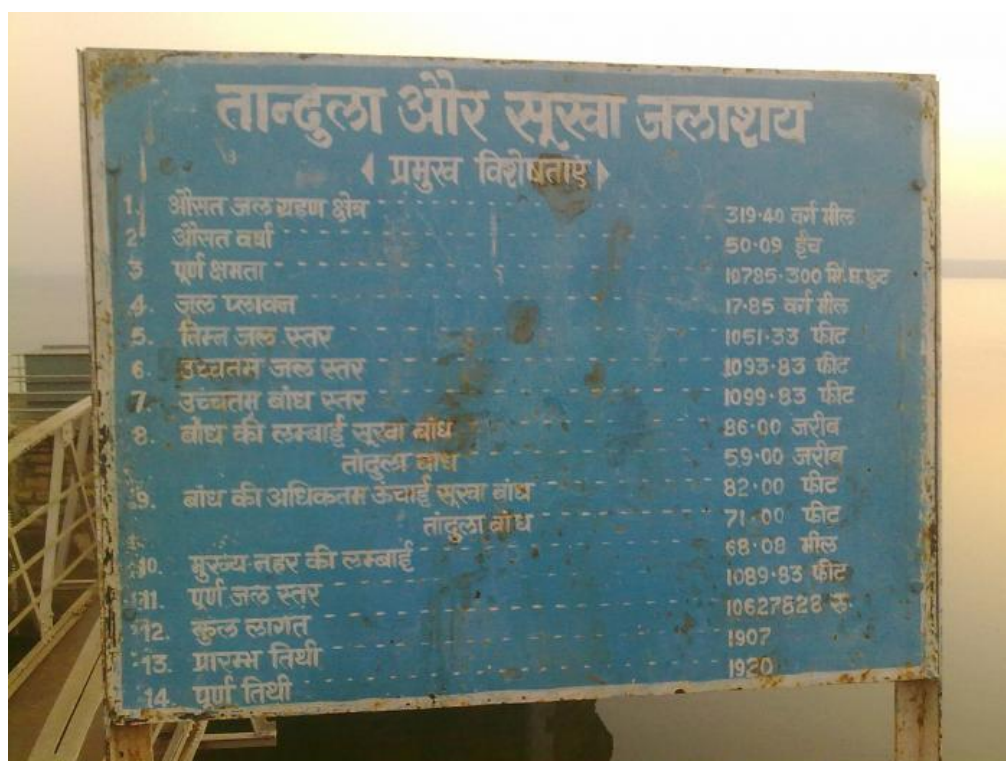 तान्दुला और सूखा जलाशय
प्रमुख विशेषताएं
1. औसत जल ग्रहण क्षेत्र 319.40 वर्ग मील
2. औसत वर्षा 50.09 ईंच
3 पूर्ण क्षमता 10785.300 मि.घ.फुट
4. जल प्लावन 17.85 वर्ग मील
5. निम्न जल स्तर 1051.33 फीट
6. उच्चतम जल स्तर 1093.83 फीट
7. उच्चतम बांध स्तर 1099.83 फीट
8. बांध की लम्बाई सूखा बांध 86.00 जरीब
तांदुला बांध 59.00 जरीब
9. बांध की अधिकतम ऊंचाई सूखा बांध 82.00 फीट
तांदुला बांध 71.00 फीट
10. मुख्य नहर की लम्बाई 68.08 मील
11. पूर्ण जल स्तर 1089.83 फीट
12. कुल लागत 10627828 रु.
13. प्रारम्भ तिथी 1907
14. पूर्ण तिथी 1920